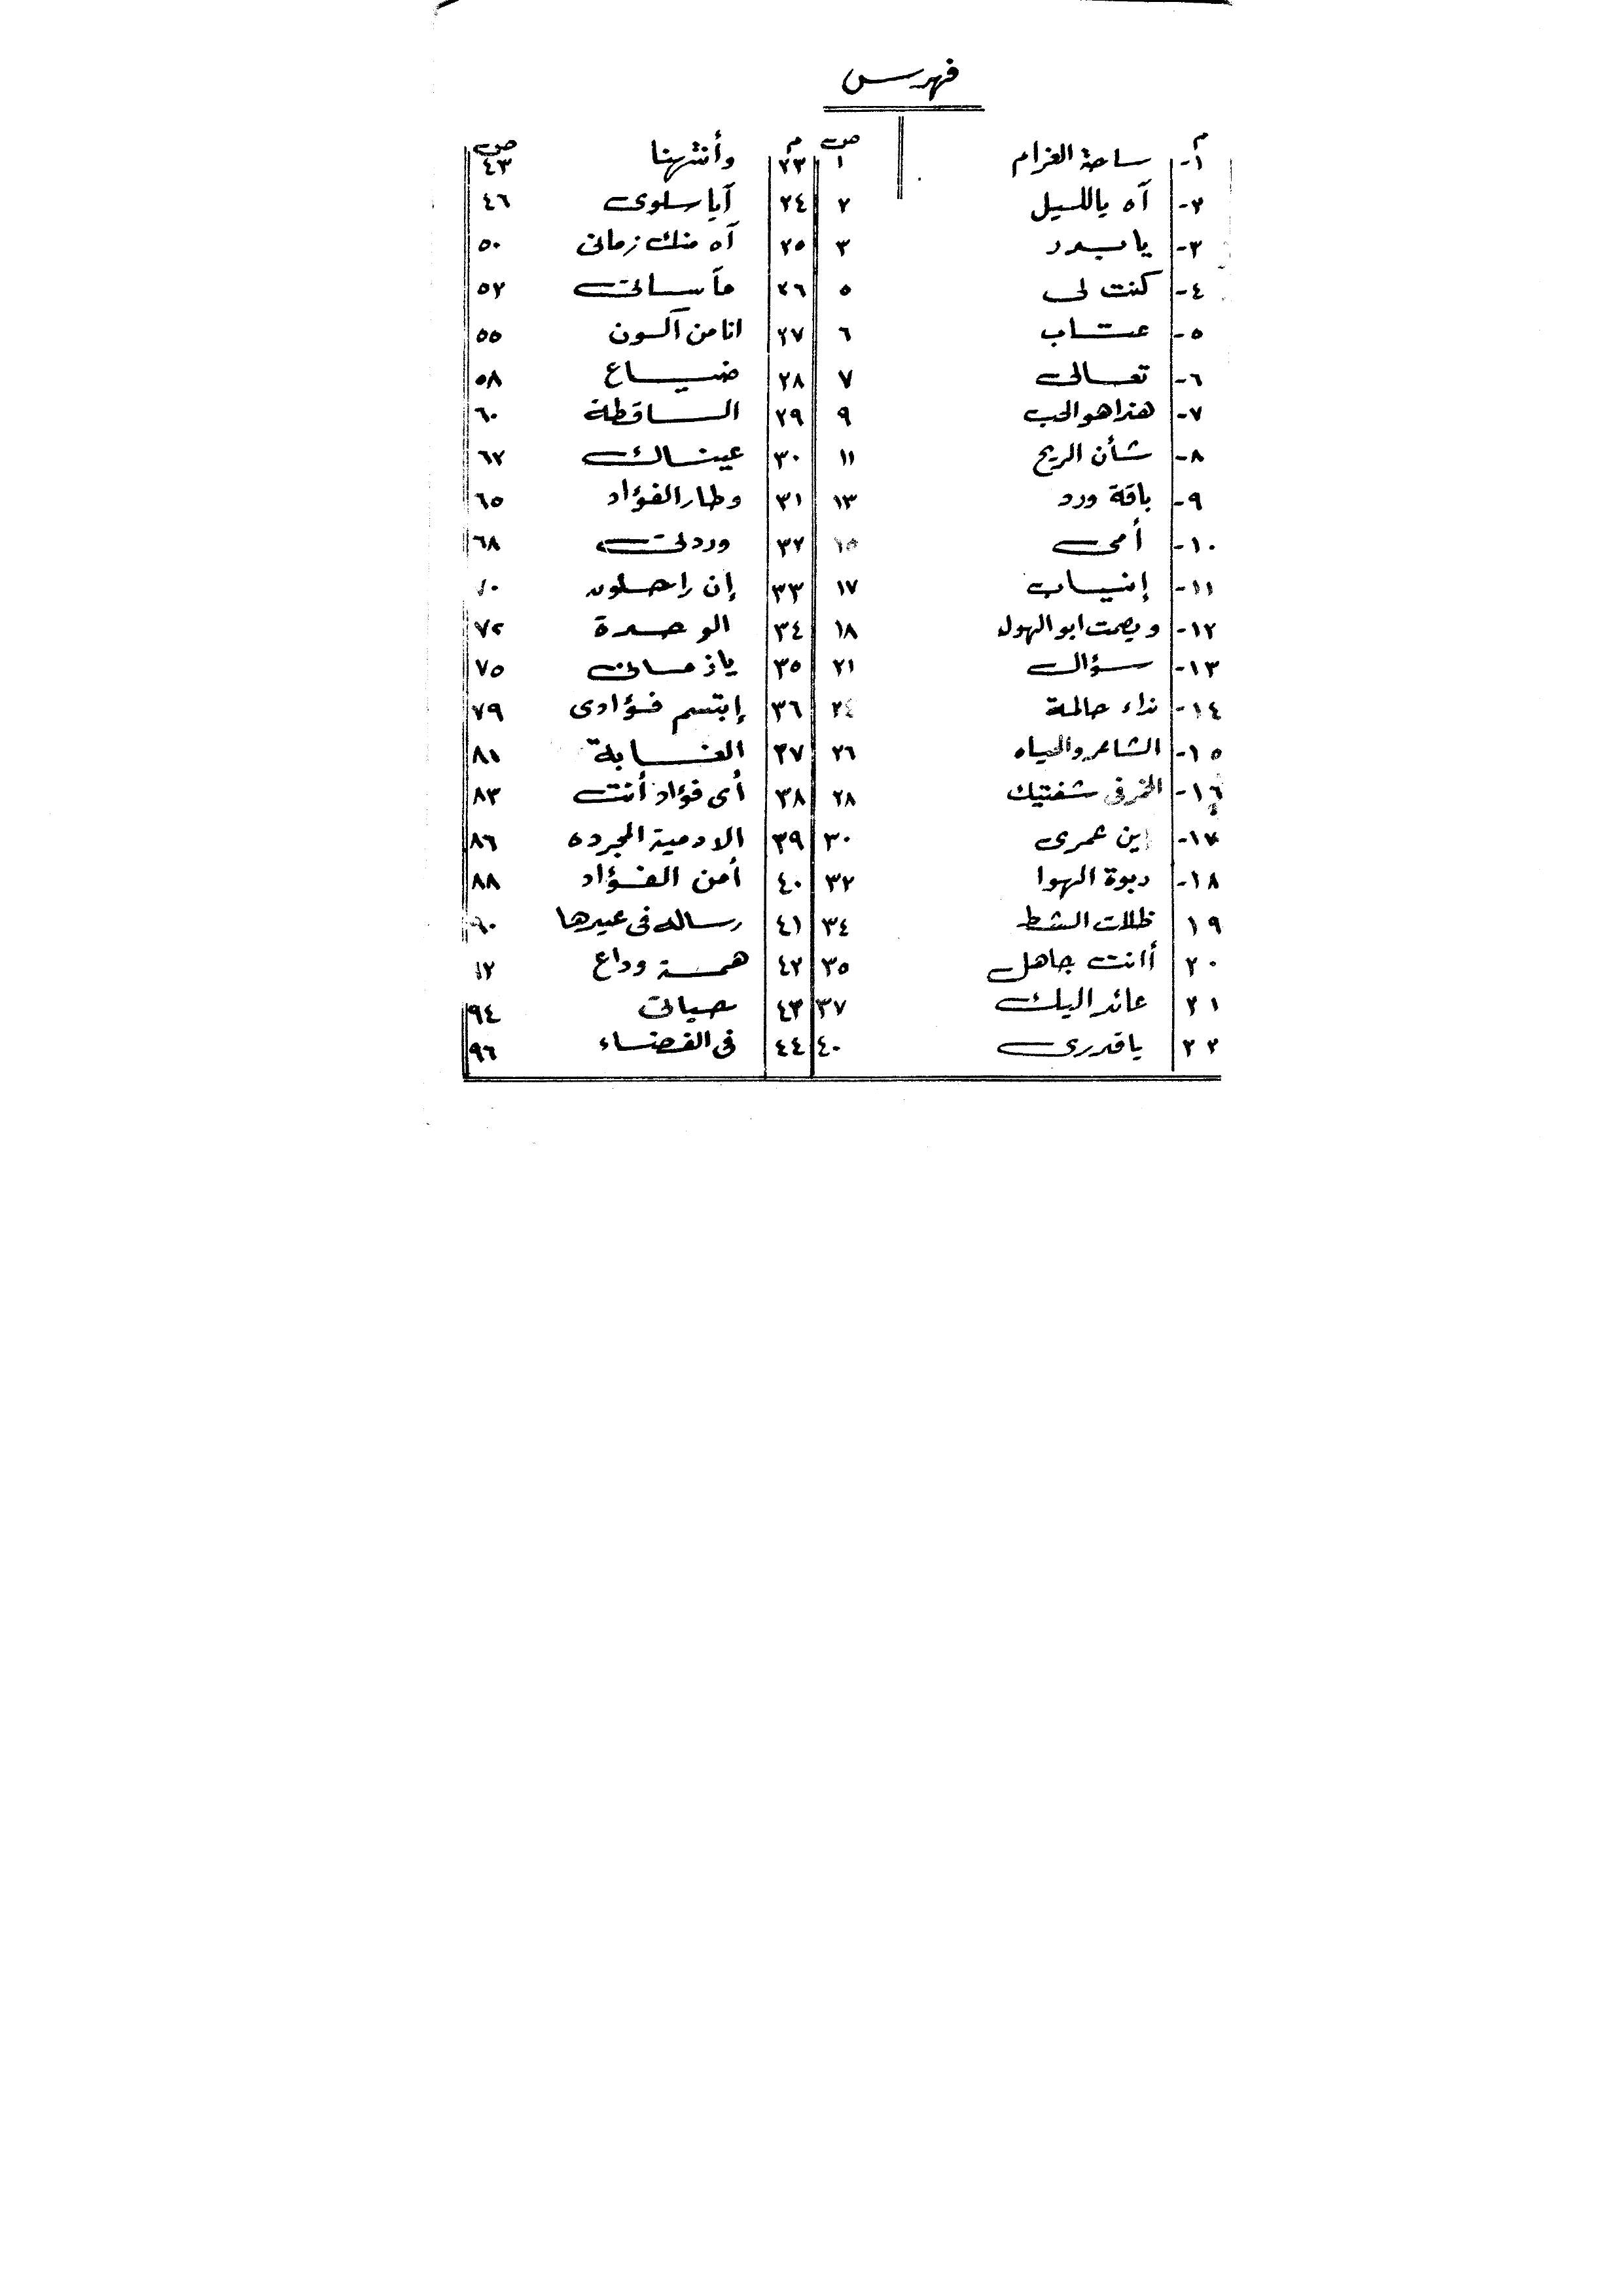 فهرس
م ص م ص
١- ساحة الغرام ١ ٢٣ وأنتهينا ٤٣
٢- آه ياالليل ٢ ٢٤ آيا سلوى ٤٦
٣- يا بدر ٣ ٢٥ آه منك زمانى ٥٠
٤- كنت لى ٥ ٢٦ مآساتى ٥٢
٥- عتاب ٦ ٢٧ انا من آكون ٥٥
٦- تعالى ٧ ٢٨ ضياع ٥٨
٧- هذا هو الحب ٩ ٢٩ الساقطة ٦٠
٨- شأن الريح ١١ ٣٠ عيناك ٦٢
٩- باقة ورد ١٣ ٣١ وطار الفؤاد ٦٥
١٠- أمى ١٥ ٣٢ وردتى ٦٨
١١- إنياب ١٧ ٣٣ إن راحلون
١٢- ويصمت ابو الهول ١٨ ٣٤ الوحدة ٧٢
١٣- سؤال ٢١ ٣٥ يا زمانى ٧٥
١٤- نداء حالمة ٢٤ ٣٦ إبتسم فؤادى ٧٩
١٥- الشاعر والحياه ٢٦ ٣٧ الغابة ٨١
١٦- الخمر فى شفتيك ٢٨ ٣٨ أى فؤاد أنت ٨٣
١٧- اين عمرى ٣٠ ٣٩ الادمية المجرده ٨٦
١٨- ربوة الهوا ٣٢ ٤٠ أمن الفؤاد ٨٨
١٩ ظلات الشط ٣٤ ٤١ رساله فى عيدها ٩٠
٢٠ أانت جاهل ٣٥ ٤٢ همسة وداع
٢١ عائد اليك ٣٧ ٤٣ حياتى ٩٤
٢٢ يا قدرى ٤٠ ٤٤ فى الفضاء ٩٦